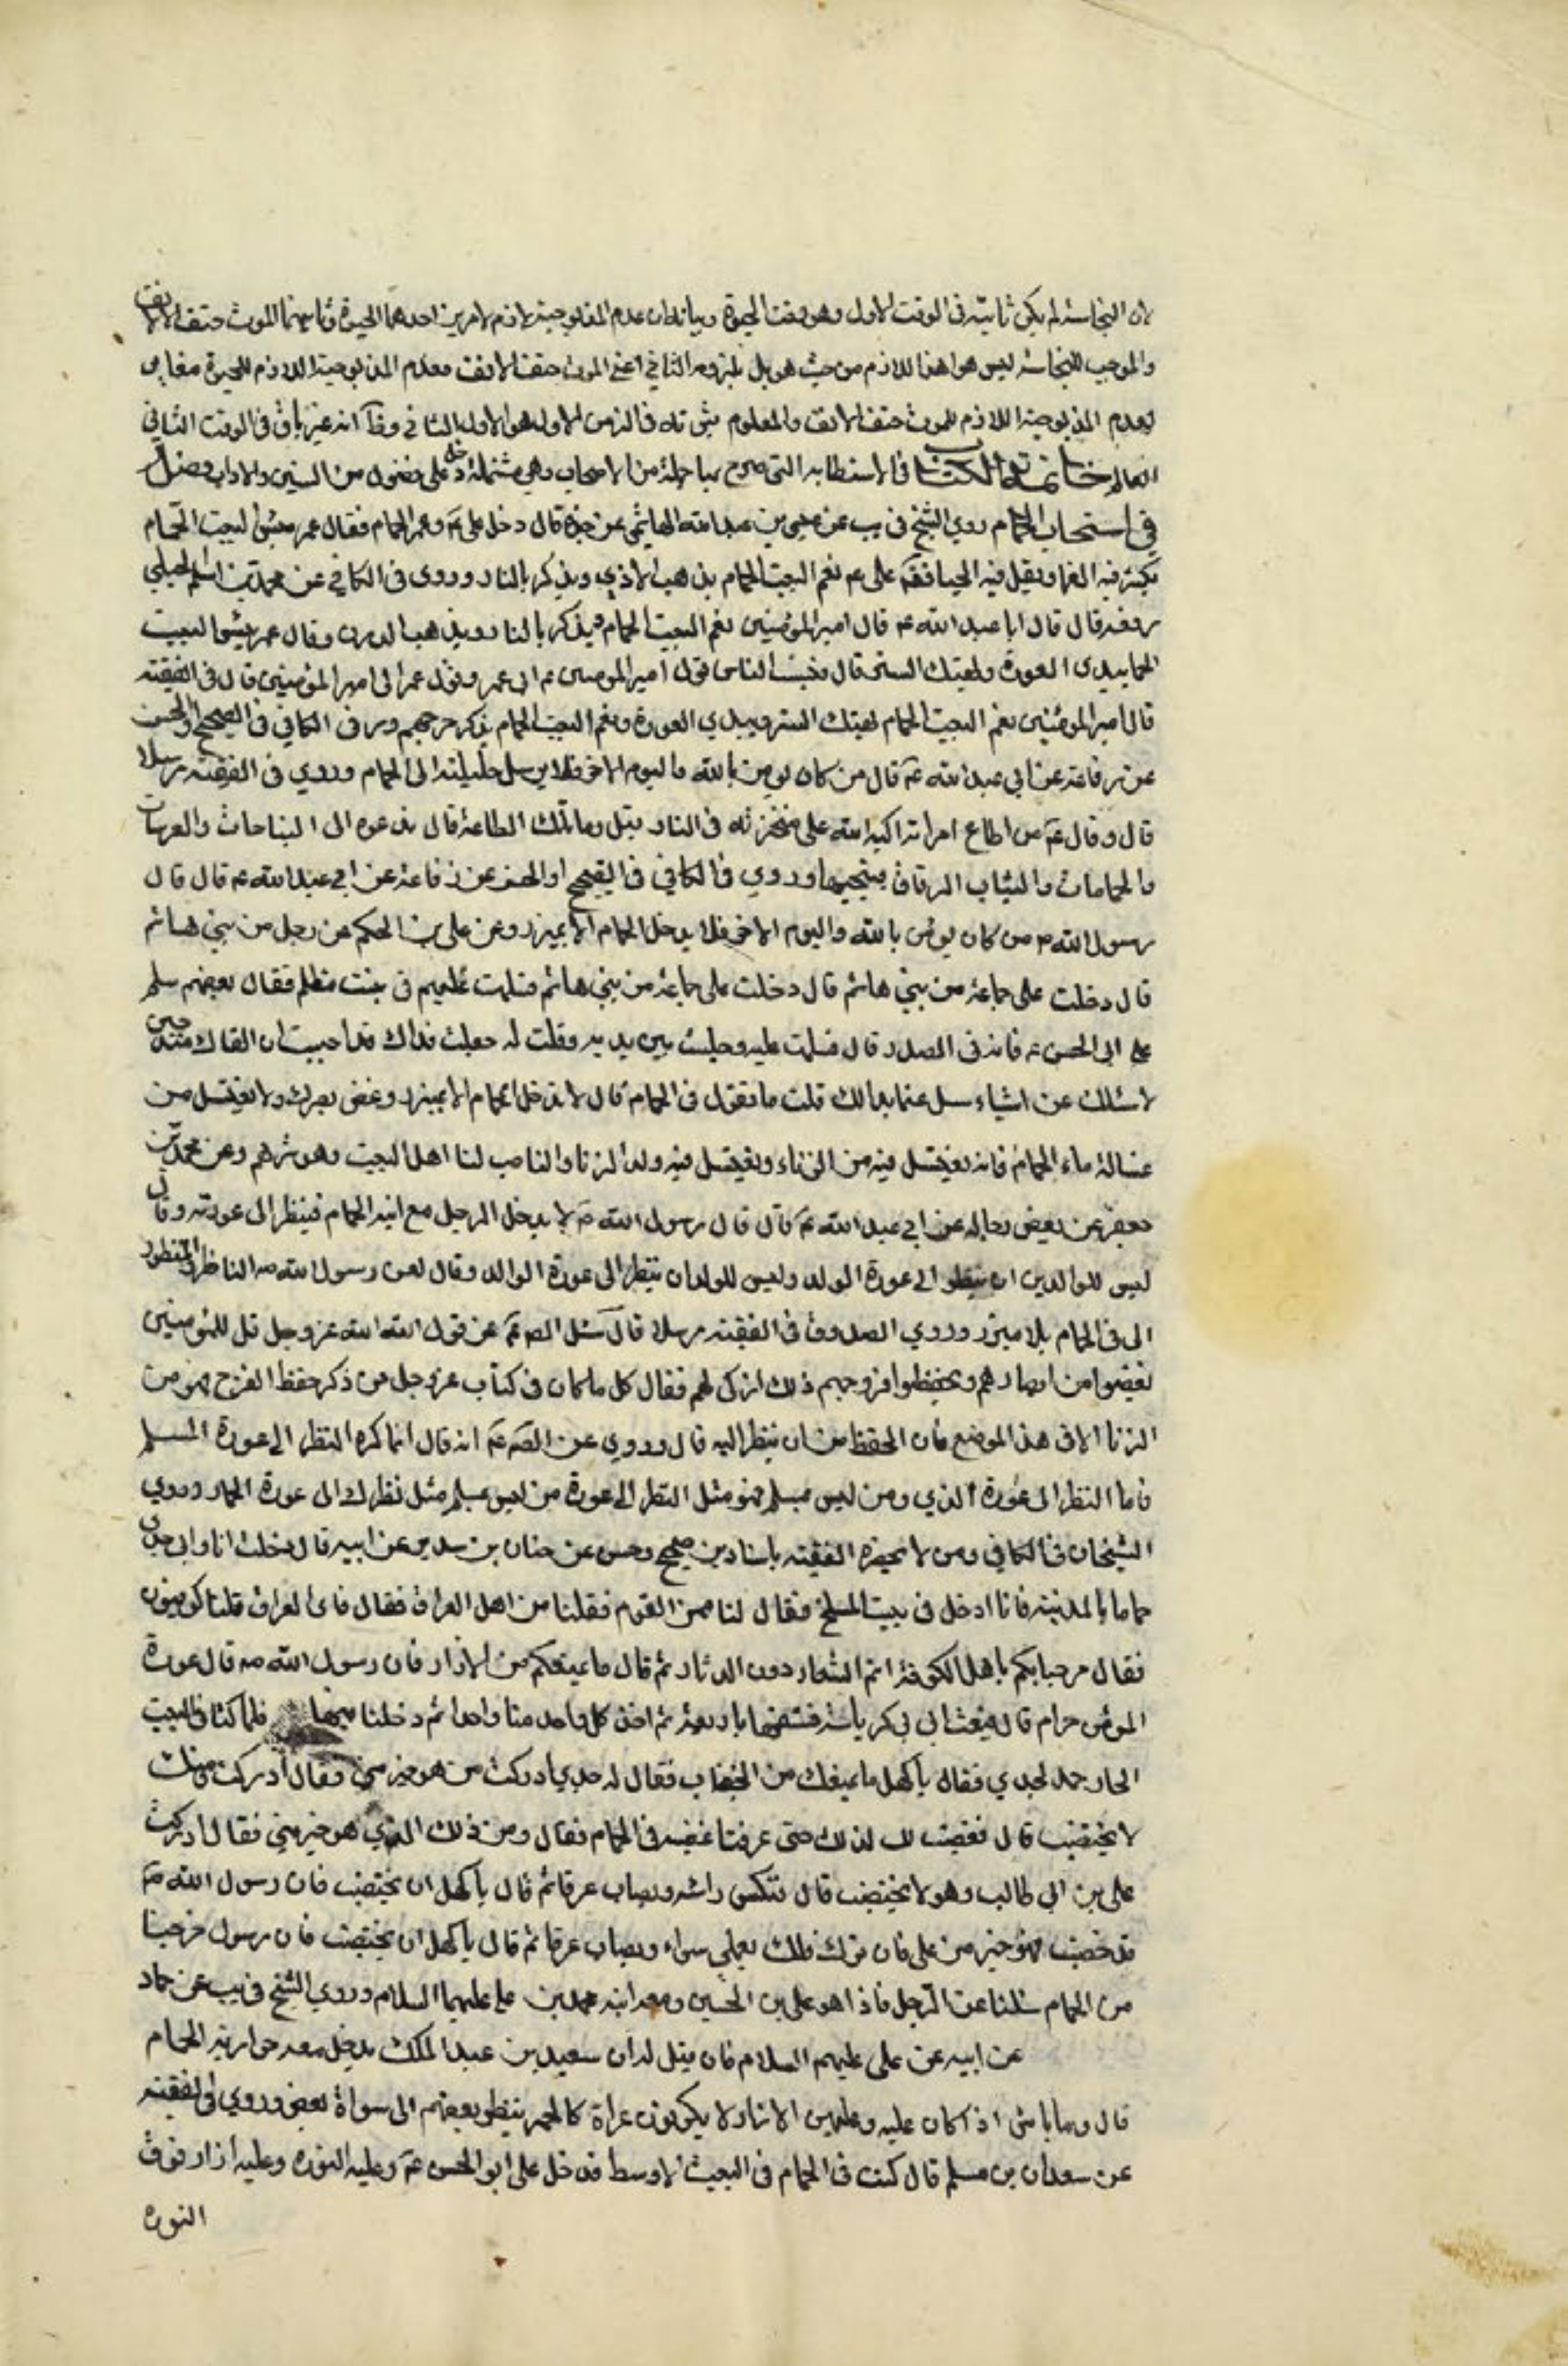 لان النجاسة لم يكن ثابتة فى الوقت الاول وهو وقت الحيوة وبيانه ان عدم المذبوحية لازم لامرين احدهما الحيوة وثانيهما الموت حتف الانف
والموجب للنجاسة ليس هو هذا اللازم من حيث هو بل ملزومه الثاني اعنى الموت حتف الانف فعدم المذبوحية اللازم للحيوة مغاير
لعدم المذبوحية اللازم للموت حتف الانف والمعلوم ثبوته فى الزمن الاول هو الاول لا الثاني وظاهر انه غير باق فى الوقت الثاني
خاتمة الكتاب فى الاستطابة التى صرح بها جملة من الاصحاب وهى مشتملة على فصول من السنن والاداب فصل
فى استحباب الحمام روى الشيخ فى يب عن عيسى بن عبد الله الهاشمي عن جده قال دخل على ع وعمر الحمام فقال عمر بئس البيت الحمام
يكثر فيه العنا ويقل فيه الحيا فقال على ع نعم البيت الحمام يذهب الاذى ويذكر بالنار وروى فى الكافي عن محمد بن اسلم الجبلي
رفعه قال قال ابا عبد الله ع قال امير المؤمنين نعم البيت الحمام يذكر بالنار ويذهب بالدرن وقال عمر بئس البيت
الحمام يبدى العورة ويهتك الستر قال ونسب الناس قول امير المومنين ع الى عمر وقول عمر الى امير المؤمنين قال فى الفقيه
قال امير المؤمنين نعم البيت الحمام يهتك الستر ويبدي العورة ونعم البيت الحمام يذكر حر جهنم وروى فى الكافي فى الصحيح او الحسن
عن رفاعة عن ابي عبد الله ع قال من كان يومن بالله واليوم الاخر فلا يرسل حليلته الى الحمام وروي فى الفقيه مرسلا
قال وقال ع من اطاع امراته اكبه الله على منخريه فى النار قيل وما تلك الطاعة قال تدعوه الى النياحات والعرسات
والحمامات والثياب الرقاق فيجيبها وروي فى الكافي فى الصحيح او الحسن عن رفاعة عن ابي عبد الله ع قال قال
رسول الله ص من كان يومن بالله واليوم الاخر فلا يدخل الحمام الا بميزر وعن على بن الحكم عن رجل من بني هاشم
قال دخلت على جماعة من بني هاشم قال دخلت على جماعة من بني هاشم فسلمت عليهم فى بيت مظلم فقال بعضهم سلم
على ابى الحسن ع فانه فى الصدر قال فسلمت عليه وجلست بين يديه وقلت له جعلت فداك قد احببت ان القاك منذ حين
لاسئلك عن اشياء سل عما بدا لك قلت ما تقول فى الحمام قال لا تدخل الحمام الا بميزر وغض بصرك ولا تغتسل من
غسالة ماء الحمام فانه يغتسل فيه من الزناء ويغتسل فيه ولد الزنا والناصب لنا اهل البيت وهو شرهم وعن محمد بن
جعفر عن بعض رجاله عن ابي عبد الله ع قال قال رسول الله ص لا يدخل الرجل مع ابنه الحمام فينظر الى عورته وقال
ليس للوالدين ان ينظر الى عورة الولد وليس للولد ان ينظر الى عورة الوالد وقال لعن رسول الله ص الناظر والمنظور
الى فى الحمام بلا ميزر وروي الصدوق فى الفقيه مرسلا قال سئل الصادق ع عن قول الله عز وجل قل للمؤمنين
يغضوا من ابصارهم ويحفظوا فروجهم ذلك ازكى لهم فقال كل ما كان فى كتاب عز وجل من ذكر حفظ الفرج فهو من
الزنا الا فى هذا الموضع فان الحفظ من ان ينظر اليه قال وروي عن الصادق ع انه قال انما كره النظر الى عورة المسلم
فاما النظر الى عورة الذي ومن ليس بمسلم فهو مثل النظر الى عورة من ليس بمسلم مثل نظرك الى عورة الحمار وروي
الشيخان فى الكافي ومن لا يحضره الفقيه باسنادين صحيح وحسن عن حنان بن سدير عن ابيه قال دخلت انا وابى وجدى
حماما بالمدينة فاذا ادخل فى بيت المسلخ فقال لنا ممن القوم فقلنا من اهل العراق فقال واى العراق قلنا كوفيون
فقال مرحبا بكم يا اهل الكوفة انتم الشعار دون الدثار ثم قال ما يمنعكم من الازار فان رسول الله ص قال عورة
المومن حرام قال فبعث الى ابى كرباسة فشقها باربعة ثم اخذ كل واحد منا واحدا ثم دخلنا فيها فلما كنا فى البيت
الحار صمد لجدي فقال يا كهل ما يمنعك من الخضاب فقال له جدي ادركت من هو خير مني ومنك
لا يختضب قال فغضب لذلك حتى عرفنا غضبه فى الحمام فقال ومن ذلك الذي هو خير مني فقال ادركت
على بن ابى طالب وهو لا يختضب قال فنكس راسه وتصاب عرقا ثم قال يا كهل ان تختضب فان رسول الله ص
قد خضب فهو خير من على فان تترك فلك بعلي سواء وتصاب عرقا ثم قال يا كهل ان تختضب فان رسول خرجنا
من الحمام سالنا عن الرجل فاذا هو على بن الحسين ومعه ابنه محمد بن على عليهما السلام وروي الشيخ فى يب عن حماد
عن ابيه عن على عليهم السلام فان قيل له ان سعيد بن عبد الملك يدخل مع جواريه الحمام
قال وما باس اذا كان عليه وعليهن الازار لا يكونون عراة كالحمر ينظر بعضهم الى سواة بعض وروي فى الفقيه
عن سعدان بن مسلم قال كنت فى الحمام فى البيت الاوسط فدخل على ابو الحسن ع وعليه النوره وعليه ازار فوق
النوره